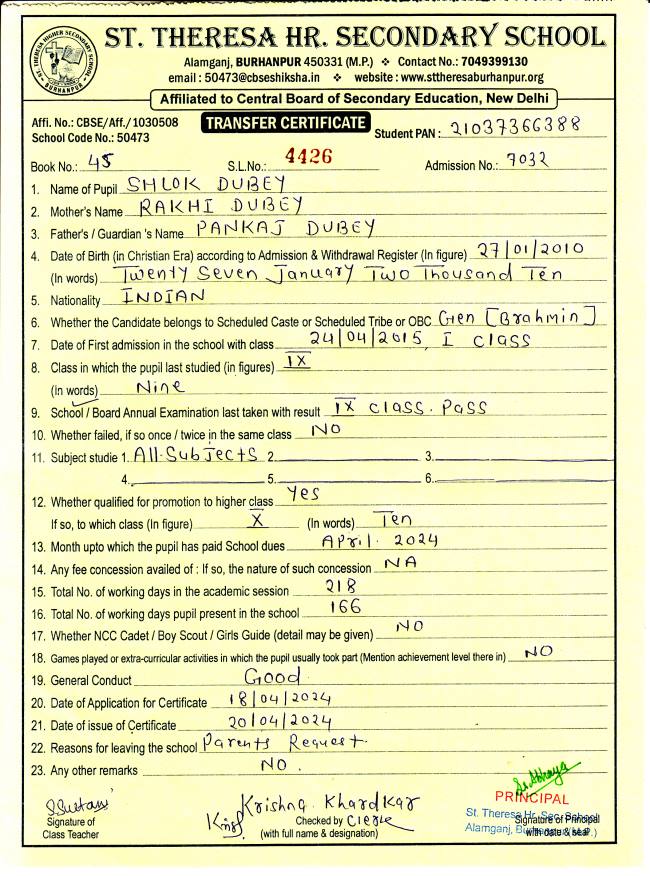 ST. THERESA HIGHER SECONDARY SCHOOL
BURHANPUR
ST. THERESA HR. SECONDARY SCHOOL
Alamganj, BURHANPUR 450331 (M.P.) ❖ Contact No.: 7049399130
email : 50473@cbseshiksha.in ❖ website : www.sttheresaburhanpur.org
Affiliated to Central Board of Secondary Education, New Delhi
Affi. No.: CBSE/Aff./1030508
TRANSFER CERTIFICATE
Student PAN : 21037366388
School Code No.: 50473
Book No.: 45 S.L.No.: 4426 Admission No.: 7032
1. Name of Pupil SHLOK DUBEY
2. Mother's Name RAKHI DUBEY
3. Father's / Guardian 's Name PANKAJ DUBEY
4. Date of Birth (in Christian Era) according to Admission & Withdrawal Register (In figure) 27/01/2010
(In words) Twenty Seven January Two Thousand Ten
5. Nationality INDIAN
6. Whether the Candidate belongs to Scheduled Caste or Scheduled Tribe or OBC Gen [Brahmin]
7. Date of First admission in the school with class 24/04/2015, I class
8. Class in which the pupil last studied (in figures) IX
(In words) Nine
9. School / Board Annual Examination last taken with result IX class. Pass
10. Whether failed, if so once / twice in the same class NO
11. Subject studie 1. All Subjects 2. 3.
4. 5. 6.
12. Whether qualified for promotion to higher class Yes
If so, to which class (In figure) X (In words) Ten
13. Month upto which the pupil has paid School dues April. 2024
14. Any fee concession availed of : If so, the nature of such concession NA
15. Total No. of working days in the academic session 218
16. Total No. of working days pupil present in the school 166
17. Whether NCC Cadet / Boy Scout / Girls Guide (detail may be given) NO
18. Games played or extra-curricular activities in which the pupil usually took part (Mention achievement level there in) NO
19. General Conduct Good
20. Date of Application for Certificate 18/04/2024
21. Date of issue of Certificate 20/04/2024
22. Reasons for leaving the school Parents Request
23. Any other remarks NO.
PRINCIPAL
Krishna Khardkar
St. Theresa Hr. Sec. School
Signature of Checked by Clerk Signature of Principal
Class Teacher (with full name & designation) with date & seal
Alamganj, Burhanpur (M.P.)